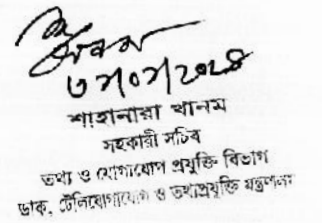 শাহানারা খানম
সহকারী সচিব
তথ্য ও যোগাযোগ প্রযুক্তি বিভাগ
ডাক, টেলিযোগাযোগ ও তথ্যপ্রযুক্তি মন্ত্রণালয়